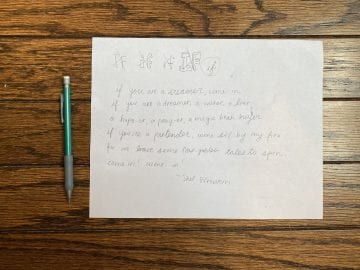 If If If If if
if you are a dreamer, come in
if you are a dreamer, a wisher, a liar,
a hope-er, a pray-er, a magic bean buyer
if you're a pretender, come sit by my fire
for we have some flax-golden tales to spin.
come in! come in!
- Shel Silverstein